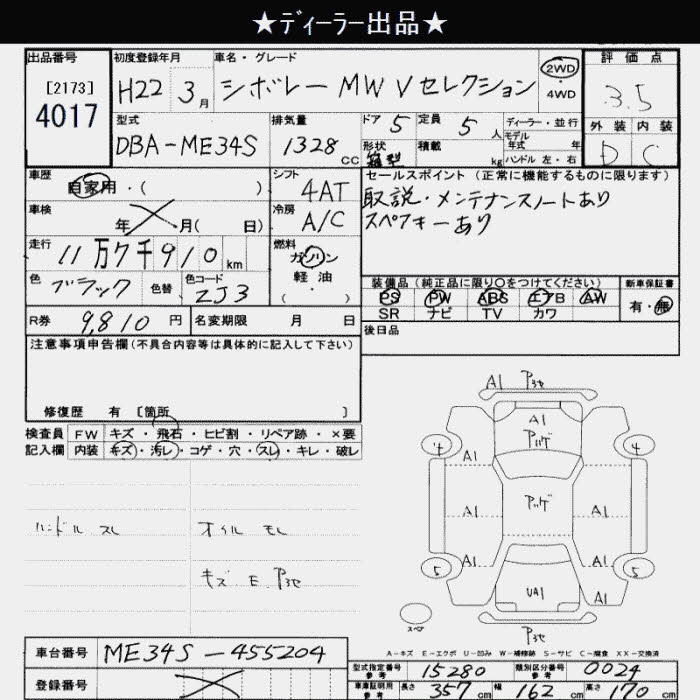 ★ディーラー出品★
出品番号
[2173]
4017
初度登録年月
H22 3月
車名・グレード
シボレー MW Vセレクション
2WD
・
4WD
評価点
3.5
外装 内装
D C
型式
DBA-ME34S
排気量
1328 cc
ドア 5
定員 5 人
形状 箱型
積載 kg
ディーラー・並行
モデル
年式 年
ハンドル 左・右
車歴
自家用・( )
シフト
4AT
車検
年 月( 日)
冷房
A/C
走行
11万7千910km
燃料
ガソリン
軽・油
( ・ )
色
ブラック
色替
色コード
ZJ3
セールスポイント(正常に機能するものに限ります)
取説・メンテナンスノートあり
スペアキーあり
装備品(純正品に限り○をつけてください)
PS PW ABS エアB AW
SR ナビ TV カワ
新車保証書
有・無
後日品
R券 9,810 円
名変期限 月 日
注意事項申告欄(不具合内容等は具体的に記入して下さい)
修復歴 有 〔箇所 〕
検査員 FW キズ・飛石・ヒビ割・リペア跡・×要
記入欄 内装 キズ・汚レ・コゲ・穴・スレ・キレ・破レ
ハンドル スレ
オイル モレ
キズ E
A1
A1
A1
A1
A1
A1
A1
A1
UA1
4 4
5 5
スペア
A-キズ E-エクボ U-凹み W-補修跡 S-サビ C-腐食 XX-交換済
車台番号 ME34S-455204
登録番号
型式指定番号
参考
15280
類別区分番号
参考
0024
車庫証明用
参考
長さ 357 cm 幅 162 cm 高さ 170 cm